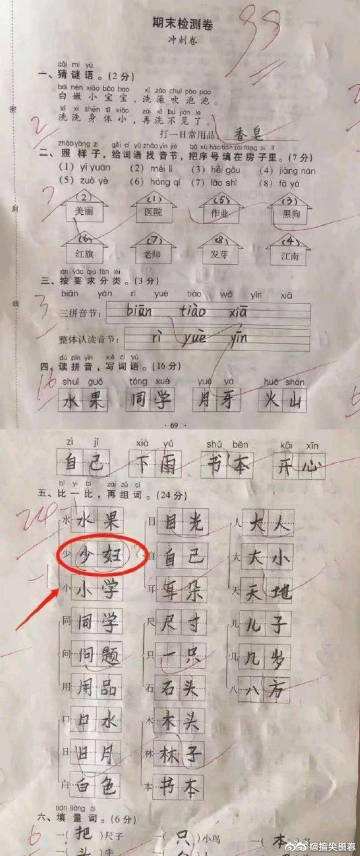 期末检测卷
冲刺卷
99
一、猜谜语。(2分)
白嫩小宝宝,洗澡吹泡泡。
洗洗身体小,再洗不见了。
打一日常用品 香皂
2
二、照样子,给词语找音节,把序号填在房子里。(7分)
(1) yī yuàn (2) měi lì (3) hēi gǒu (4) jiāng nán
(5) zuò yè (6) hóng qí (7) lǎo shī (8) fā yá
(2) (1) (5) (3)
美丽 医院 作业 黑狗
(6) (7) (8) (4)
红旗 老师 发芽 江南
三、按要求分类。(3分)
biān rì tiào yuè wǒ yīn xiā
三拼音节: biān tiào xiā
整体认读音节: rì yuè yīn
3
四、读拼音,写词语。(16分)
16
shuǐ guǒ tóng xué yuè yá huǒ shān
水果 同学 月牙 火山
· 69 ·
zì jǐ xià yǔ shū běn kāi xīn
自己 下雨 书本 开心
五、比一比,再组词。(24分)
水 水果 目 目光 人 大人
少 少妇 自 自己 大 大小
小 小学 耳 耳朵 天 天地
同 同学 尺 尺寸 儿 儿子
问 问题 只 一只 几 几岁
用 用品 石 石头 八 八方
口 口水 木 木头
日 日月 林 林子
白 白色 本 书本
六、填量词。(6分)
6
一(把)尺子 一(只)小鸟 一(本)
@指尖掘慕